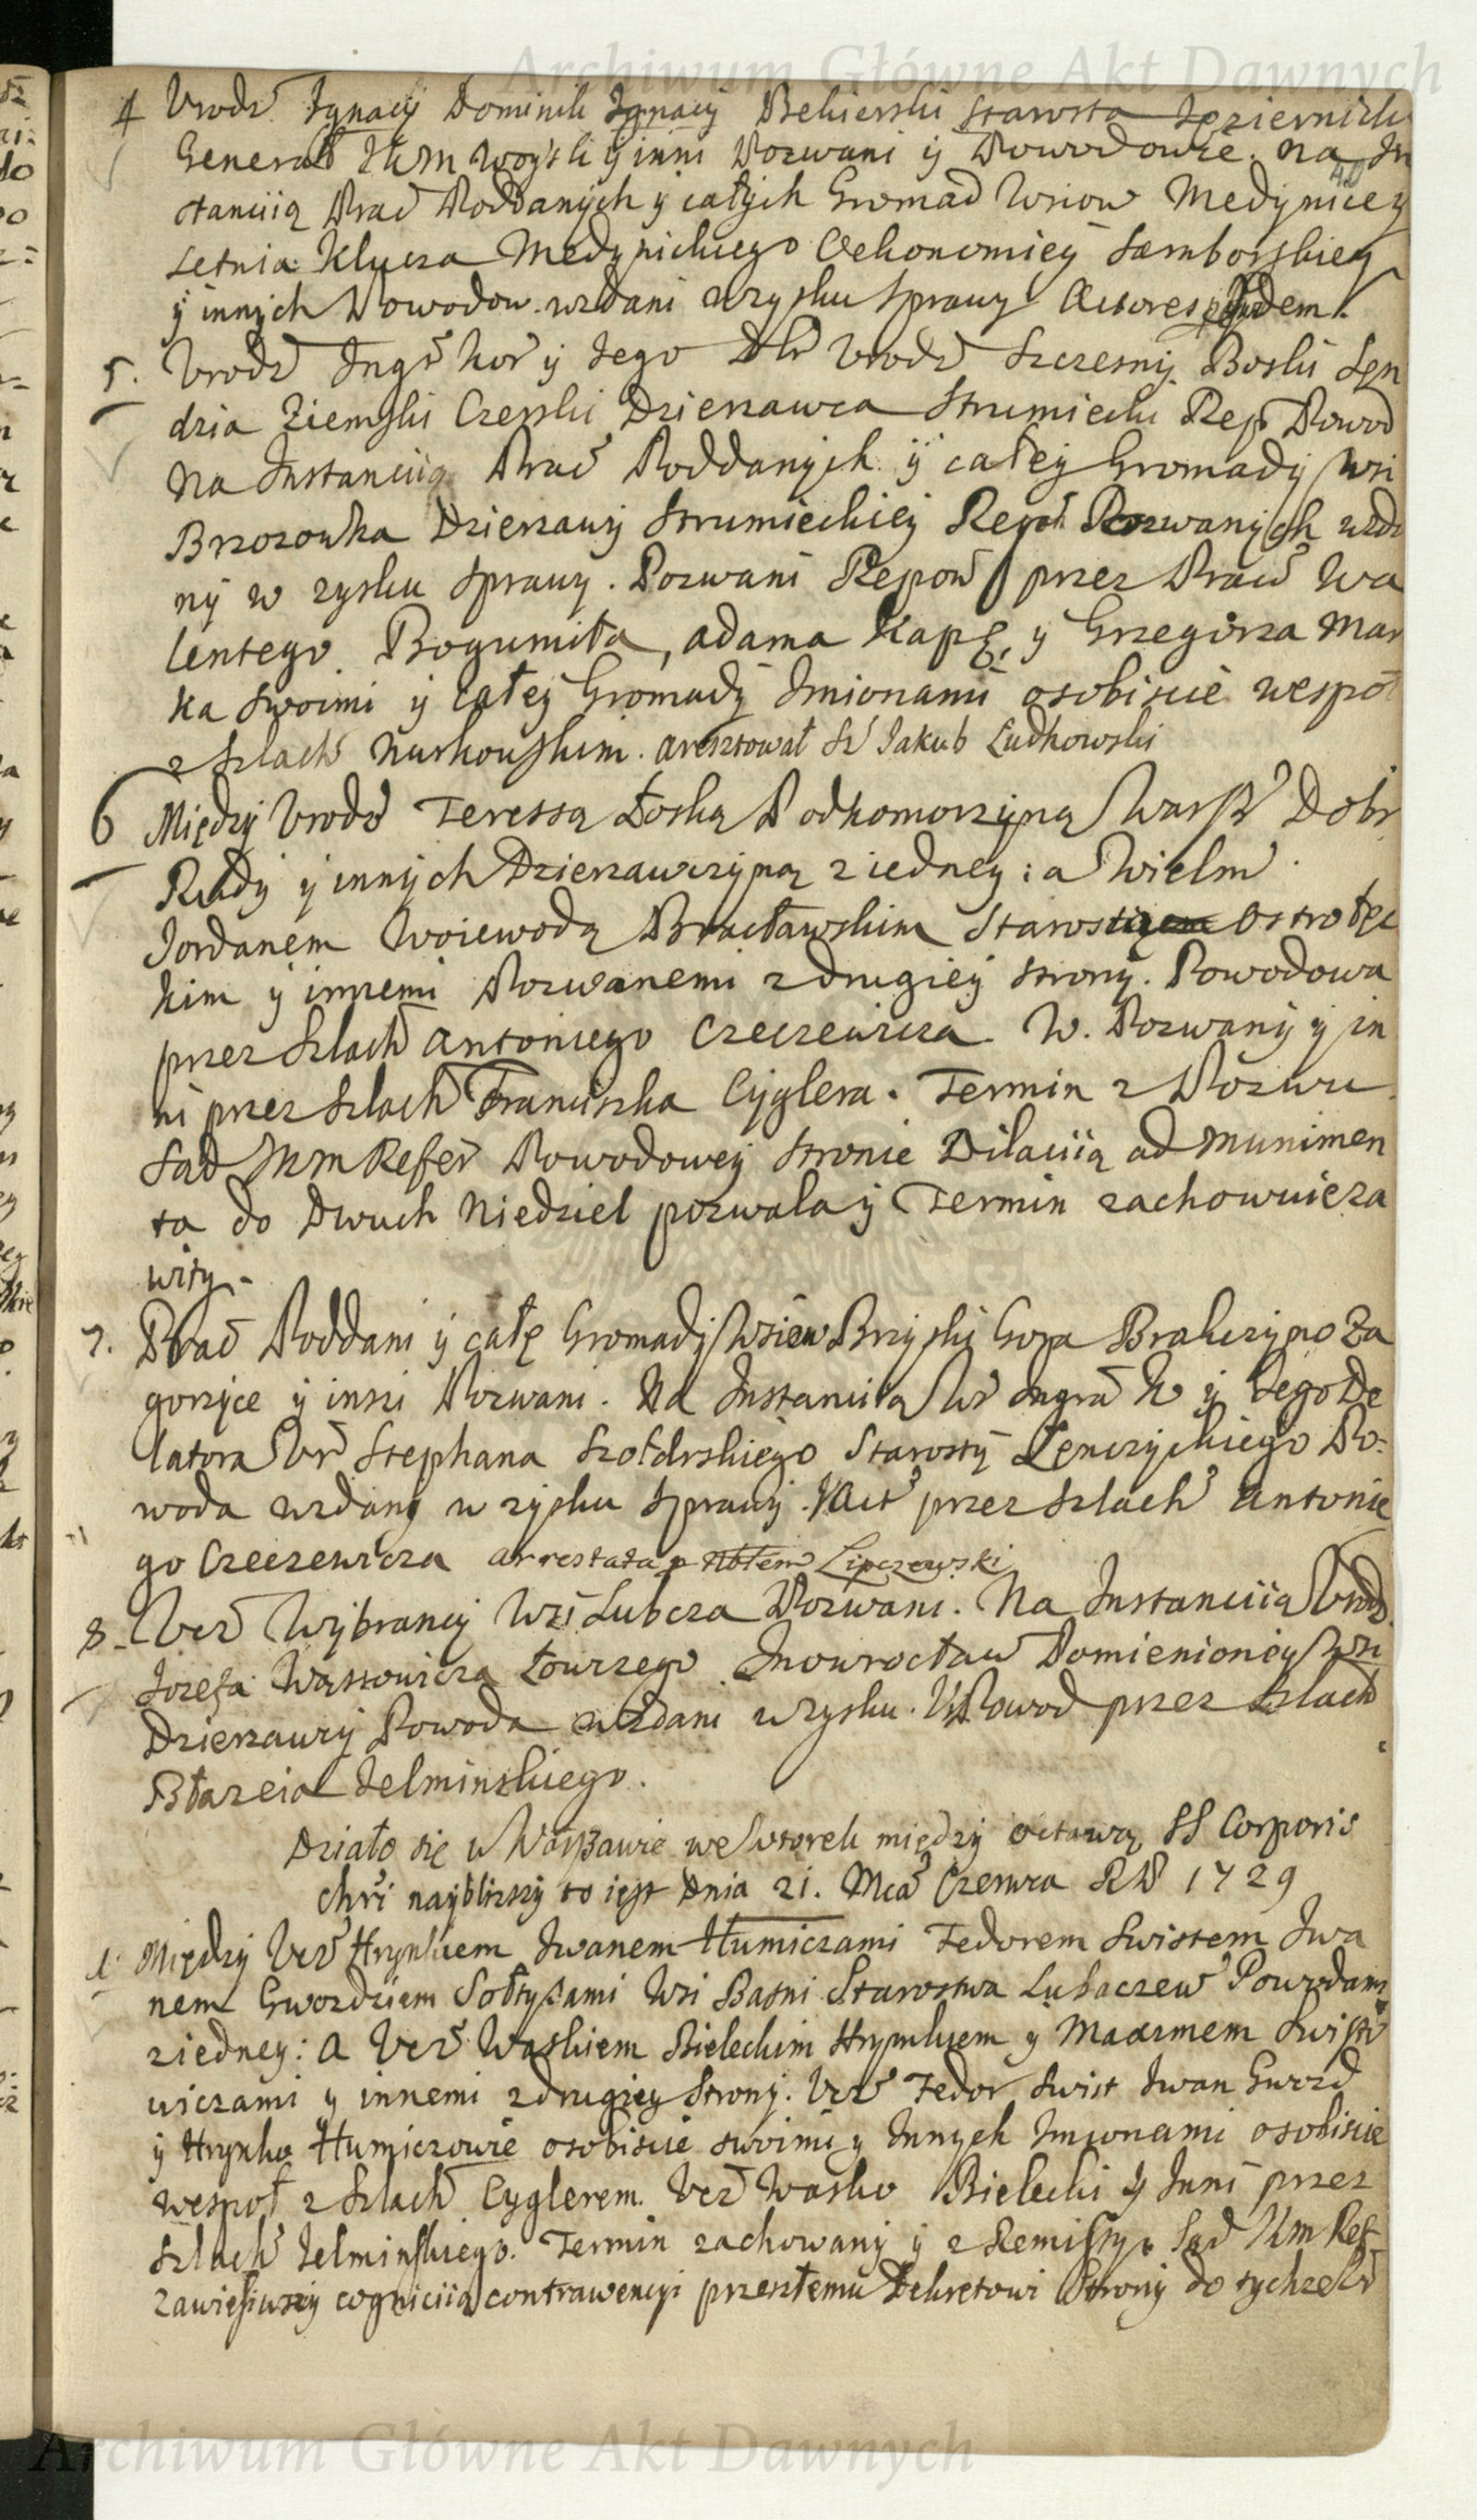 Archiwum Główne Akt Dawnych
4 Urodz Ignacy Dominik Ignacy Bekierski Starosta
Generał JKM Woysk y inni Pozwani y Powodowie. Na In
40
stanciią Prac Poddanych y całych Gromad Wsiow Medynicey
Letnia Klucza Medynickiego Oekonomiey Samborskiey
y innych Powodow wzdani wzysku Sprawy
5. Urodz Ingr Kor y Jego Dlr Urodz Szczesny Boski Sęn
dzia Ziemski Czerski Dzierzawca Strumiecki Rep Powod
Na Instanciią Prac Poddanych y całey Gromady Wsi
Brzozowka Dzierzawy Strumieckiey Repch Pozwanych wzda
ny w zysku Sprawy. Pozwani Repow przez Prac Wa
lentego Bogumiła, Adama Kapę, y Grzegorza Mar
ka Swoimi y całey Gromady Imionami osobiscie wespoł
z Szlach Kurkowskim. aresztował Sz Jakub Ludkowski
6 Między Urodz Teressą Łoską Podkomorzyną Warsz Dobr
Rudy y innych Dzierzawczyną z iedney: a Wielm
Jordanem Woiewodą Bracławskim Starostą Ostrołęc
kim y innemi Pozwanemi z drugiey strony. Powodowa
przez Szlach Antoniego Czeczewicza W. Pozwany y in
ni przez Szlach Franciszka Cyglera. Termin z Pozwu
Sąd JKM Refer Powodowey Stronie Dilaciią ad Munimen
ta do Dwuch Niedziel pozwala y Termin zachowuie za
wity.
7. Prac Poddani y całe Gromady Wsiow Brzyski Gora Brakczyno Za
gorzyce y inszi Pozwani. Na Instancią Ur Ingra K y Jego De
latora Ur Stephana Szołdrskiego Starosty Łenczyckiego Po:
woda wzdany w zysku Sprawy. przez Szlach Antonie
go Czeczewicza arrestata p Lipczewski
8. Ucz Wybrancy Wsi Lubcza Pozwani. Na Instanciią Urodz
Jozefa Wąssowicza Łowczego Inowrocław Pomienioney Wsi
Dzierzawy Powoda wzdani w zysku. Powod przez Szlach
Błazeia Jelminskiego.
Działo się w Warszawie we Wtorek między octawą SS Corporis
Chri nayblizszy to iest Dnia 21. Mca Czerwca RP 1729
1. Między Ucz Hrynkiem Iwanem Humiczami Fedorem Swistem Iwa
nem Gwozdziem Sołtysami Wsi Basni Starostwa Lubaczew Powodami
z iedney: a Ucz Waskiem Bieleckim Hrynkiem y Maxymem Swisto
wiczami y innemi z drugiey Strony. Ucz Fedor Swist Iwan Gwozd
y Hrynko Humiczowie osobiscie swoimi y Innych Imionami osobiscie
wespoł z Szlach Cyglerem. Ucz Wasko Bielecki y Inni przez
Szlach Jelminskiego. Termin zachowany y z Remissy. Sąd JKM Ref
zawiesiwszy cogniciią contrawencyi przeszłemu Dekretowi Strony do tychze
Archiwum Główne Akt Dawnych